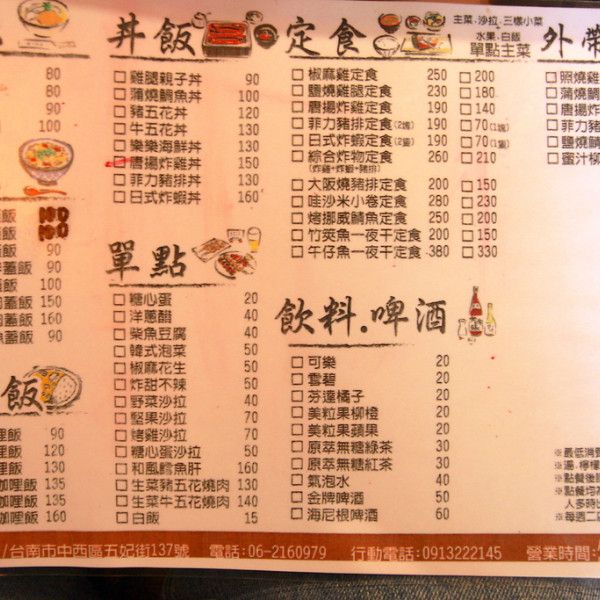 80
80
90
100
飯 100
飯 100
飯 90
蓋飯 90
飯 100
蓋飯 150
蓋飯 160
蓋飯 90
飯
哩飯 90
哩飯 120
哩飯 130
咖哩飯 135
咖哩飯 135
咖哩飯 160
丼飯
雞腿親子丼 90
蒲燒鯛魚丼 100
豬五花丼 120
牛五花丼 130
樂樂海鮮丼 130
唐揚炸雞丼 150
菲力豬排丼 130
日式炸蝦丼 160
單點
糖心蛋 20
洋蔥醋 40
柴魚豆腐 40
韓式泡菜 50
椒麻花生 50
炸甜不辣 50
野菜沙拉 40
堅果沙拉 70
烤雞沙拉 70
糖心蛋沙拉 50
和風鱈魚肝 160
生菜豬五花燒肉 130
生菜牛五花燒肉 140
白飯 15
定食
主菜.沙拉.三樣小菜
水果.白飯
單點主菜
椒麻雞定食 250 200
鹽燒雞腿定食 230 180
唐揚炸雞定食 190 140
菲力豬排定食(2塊) 190 70(1塊)
日式炸蝦定食(2隻) 190 70(1隻)
綜合炸物定食 260 210
(炸雞+炸蝦+豬排)
大阪燒豬排定食 200 150
哇沙米小卷定食 280 230
烤挪威鯖魚定食 250 200
竹筴魚一夜干定食 200 150
牛仔魚一夜干定食 380 330
飲料.啤酒
可樂 20
雪碧 20
芬達橘子 20
美粒果柳橙 20
美粒果蘋果 20
原萃無糖綠茶 30
原萃無糖紅茶 30
氣泡水 40
金牌啤酒 50
海尼根啤酒 60
外帶
照燒雞
蒲燒鯛
唐揚炸
菲力豬
鹽燒鯖
蜜汁柳
※最低消費
※湯.檸檬
※點餐後
※點餐均為
人多時出
※每週二
/台南市中西區五妃街137號 電話:06-2160979 行動電話:0913222145 營業時間: